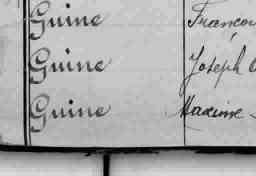 Guine Franço
Guine Joseph
Guine Maxime